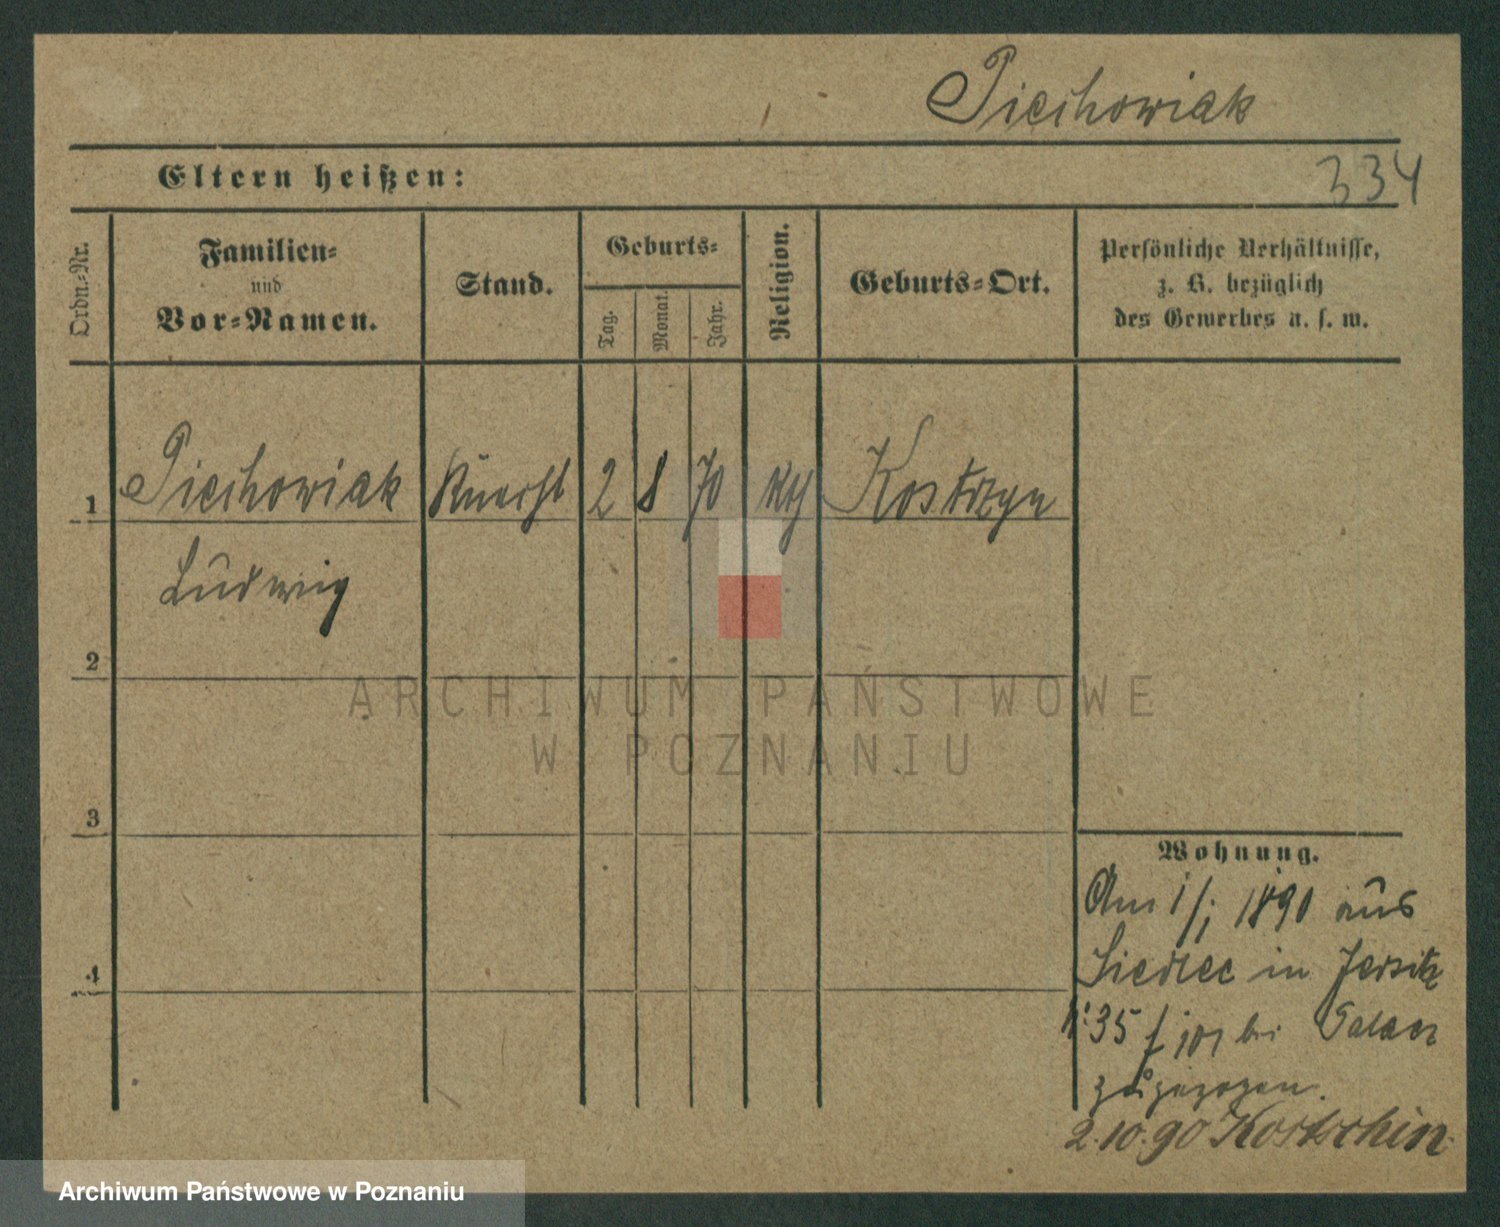 Piechowiak
Eltern heißen:
334
Ordn.-Nr.
Familien-
und
Vor-Namen.
Stand.
Geburts-
Tag.
Monat.
Jahr.
Religion.
Geburts-Ort.
Persönliche Verhältnisse,
z. B. bezüglich
des Gewerbes u. s. w.
1 Piechowiak Knecht 2 8 70 kth Kostrzyn
Ludwig
2
ARCHIWUM PAŃSTWOWE
W POZNANIU
3
Wohnung.
Am 1/1 1890 aus
4
Siedlec in Jersitz
N: 35 bei
zugezogen.
2.10.90 Kostschin
Archiwum Państwowe w Poznaniu